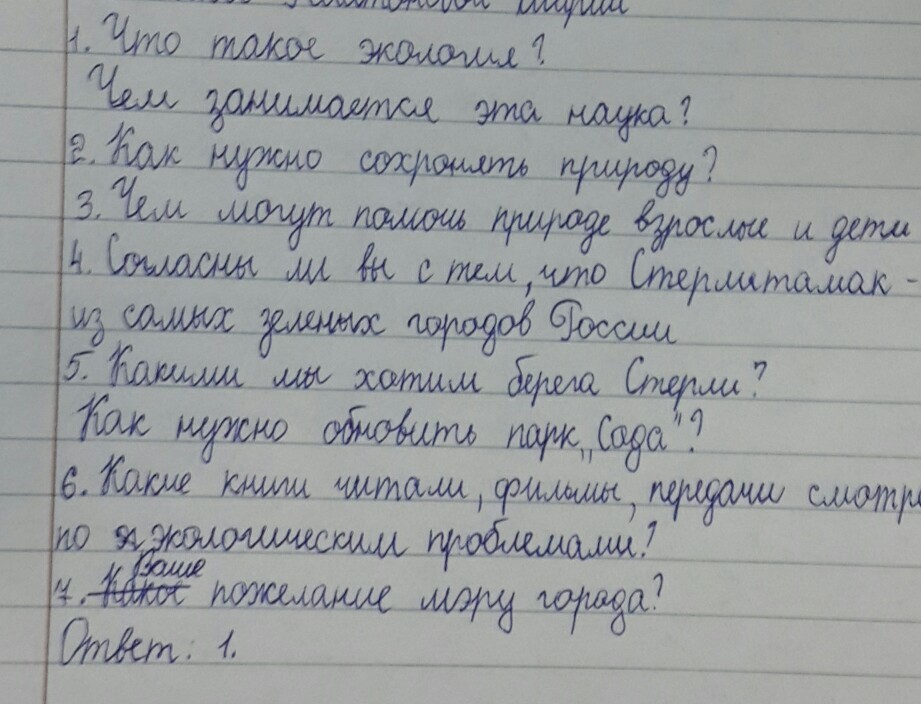 1. Что такое экология?
Чем занимается эта наука?
2. Как нужно сохронять природу?
3. Чем могут помочь природе взрослые и дети
4. Согласны ли вы с тем, что Стерлитамак -
из самых зеленых городов России
5. Какими мы хотим берега Стерли?
Как нужно обновить парк „Сода"?
6. Какие книги читали, фильмы, передачи смотре
по экологическим проблемами?
Ваше
7. Какое пожелание мэру города?
Ответ: 1.